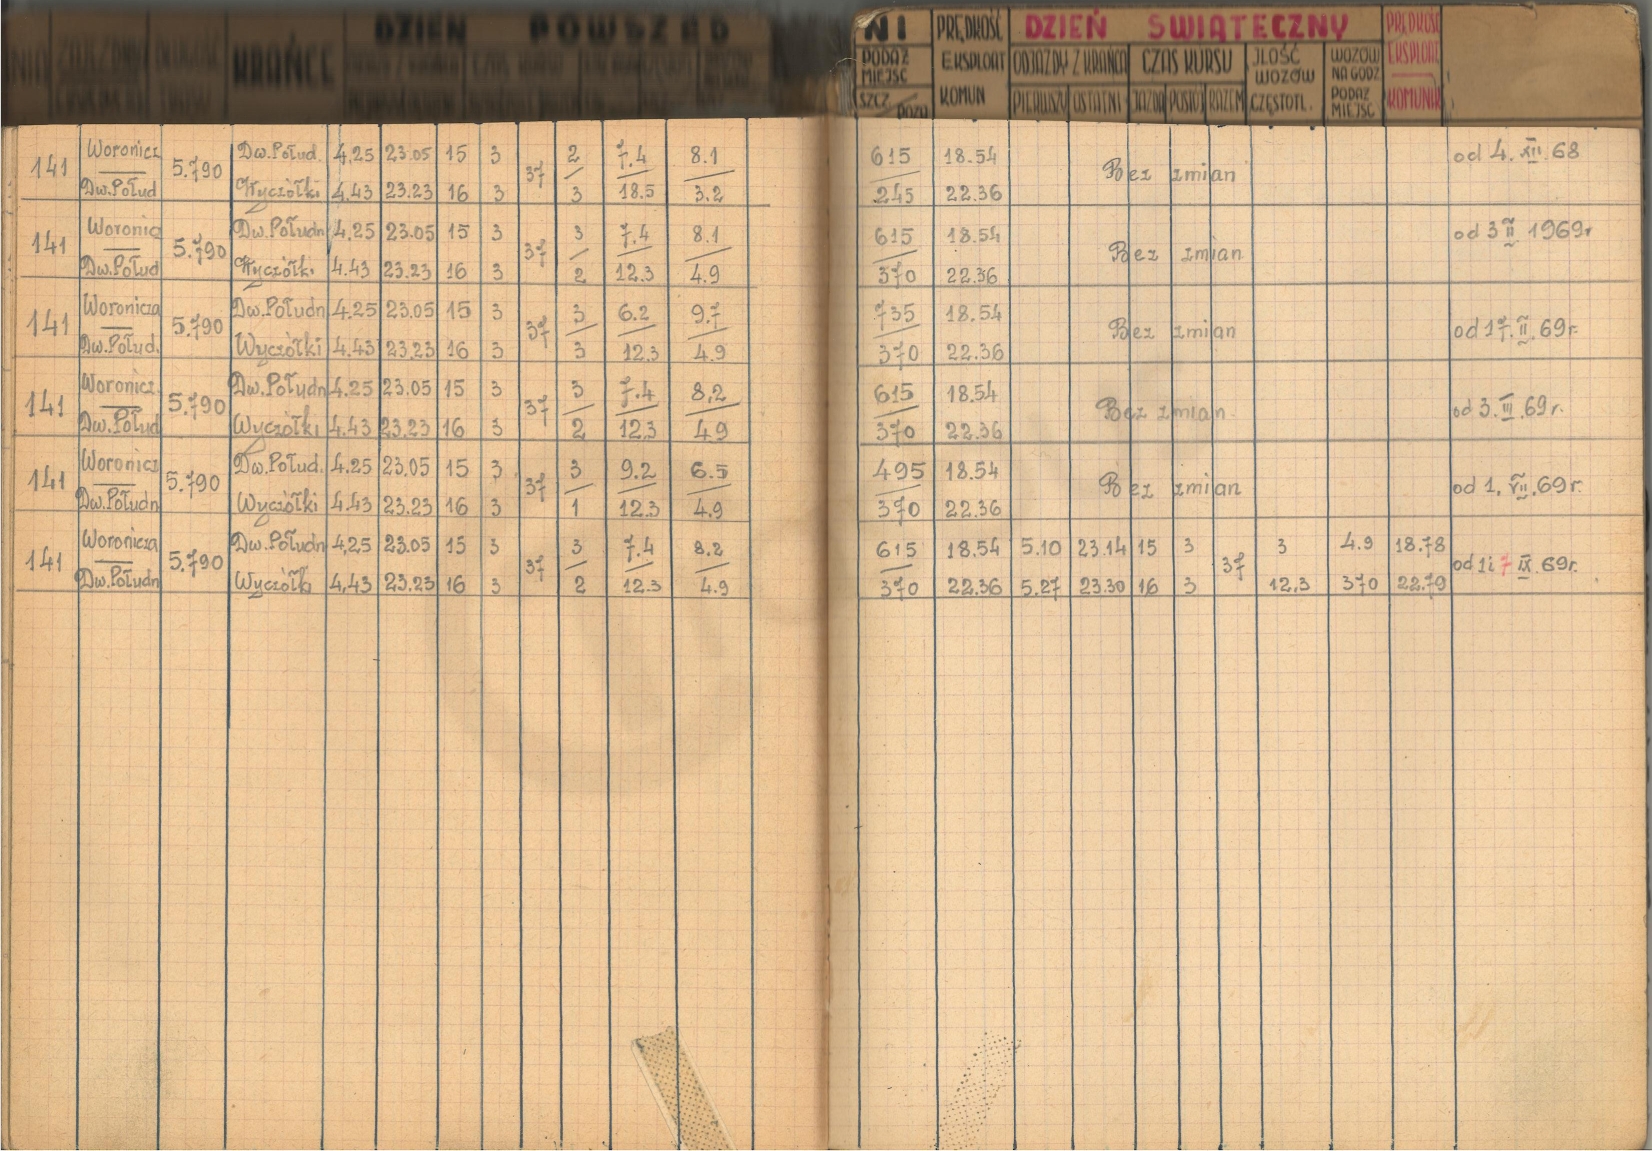 DZIEŃ POWSZED
KRAŃCE
NI
PODAŻ MIEJSC
SZCZ
PRĘDKOŚĆ
EKSPLOAT
KOMUN
DZIEŃ SWIĄTECZNY
ODJAZDY Z KRAŃCA
PIERWSZY OSTATNI
CZAS KURSU
JAZDA POSTÓJ RAZEM
JLOŚĆ WOZÓW
CZĘSTOTL.
WOZÓW NA GODZ
PODAŻ MIEJSC
PRĘDKOŚĆ
EKSPLOAT
KOMUNIK
141 Woronicz 5.790 Dw.Połud. 4.25 23.05 15 3 37 2 7.4 8.1 615 18.54 Bez zmian od 4. XII. 68
Dw.Połud Wyczółki 4.43 23.23 16 3 3 18.5 3.2 245 22.36
141 Woronic 5.790 Dw.Połudn 4.25 23.05 15 3 37 3 7.4 8.1 615 18.54 Bez zmian od 3 II 1969r
Dw.Połud Wyczółki 4.43 23.23 16 3 2 12.3 4.9 370 22.36
141 Woronicza 5.790 Dw.Połudn 4.25 23.05 15 3 37 3 6.2 9.7 735 18.54 Bez zmian od 17. II. 69r.
Dw.Połud. Wyczółki 4.43 23.23 16 3 3 12.3 4.9 370 22.36
141 Woronicz. 5.790 Dw.Połudn 4.25 23.05 15 3 37 3 7.4 8,2 615 18.54 Bez zmian. od 3. III .69r.
Dw.Połud Wyczółki 4.43 23.23 16 3 2 12.3 4.9 370 22.36
141 Woronicz 5.790 Dw.Połud. 4.25 23.05 15 3 37 3 9.2 6.5 495 18.54 Bez zmian od 1. VII .69r.
Dw.Połudn Wyczółki 4.43 23.23 16 3 1 12.3 4.9 370 22.36
141 Woronicza 5.790 Dw.Połudn 4,25 23.05 15 3 37 3 7.4 8.2 615 18.54 5.10 23.14 15 3 37 3 4.9 18.78 od 1i 7 IX. 69r.
Dw.Połudn Wyczółk 4,43 23.23 16 3 2 12.3 4.9 370 22.36 5.27 23.30 16 3 12,3 370 22.79